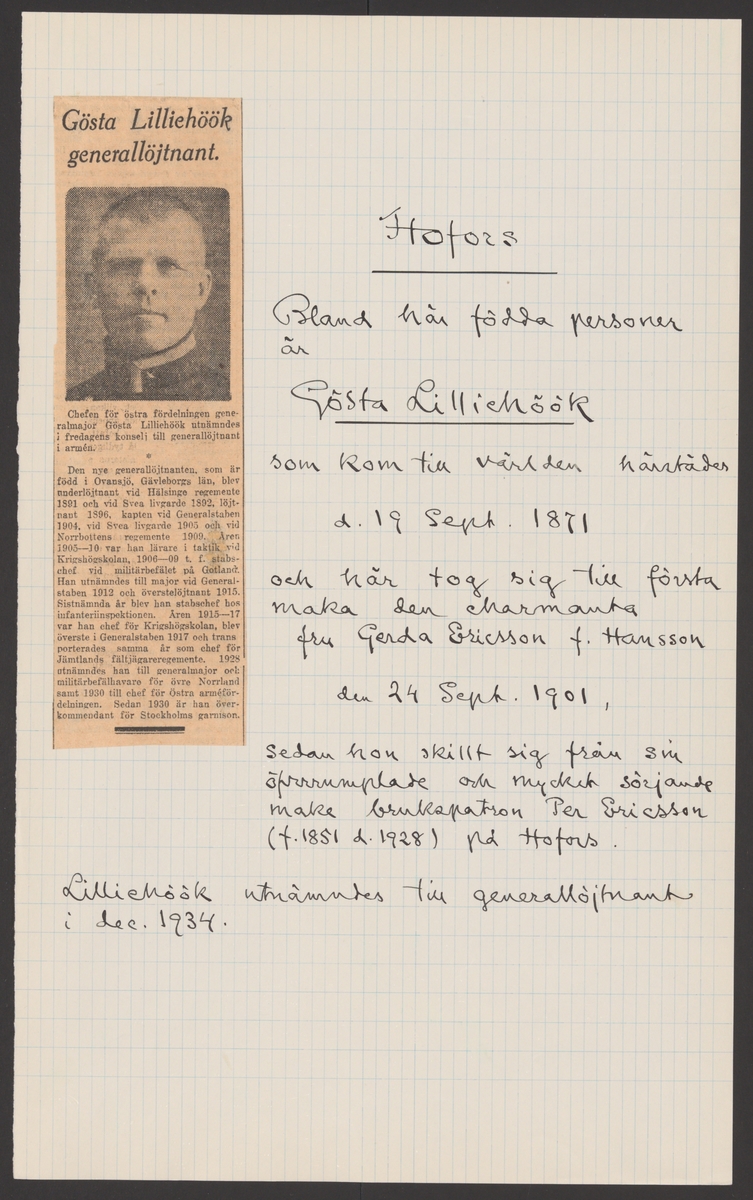 Gösta Lilliehöök
generallöjtnant.
Chefen för östra fördelningen gene-
ralmajor Gösta Lilliehöök utnämndes
i fredagens konselj till generallöjtnant
i armén.
Den nye generallöjtnanten, som är
född i Ovansjö, Gävleborgs län, blev
underlöjtnant vid Hälsinge regemente
1891 och vid Svea livgarde 1892, löjt-
nant 1896, kapten vid Generalstaben
1904, vid Svea livgarde 1905 och vid
Norrbottens regemente 1909. Åren
1905—10 var han lärare i taktik vid
Krigshögskolan, 1906—09 t. f. stabs-
chef vid militärbefälet på Gotland.
Han utnämndes till major vid General-
staben 1912 och överstelöjtnant 1915.
Sistnämnda år blev han stabschef hos
infanteriinspektionen. Åren 1915—17
var han chef för Krigshögskolan, blev
överste i Generalstaben 1917 och trans
porterades samma år som chef för
Jämtlands fältjägareregemente. 1928
utnämndes han till generalmajor och
militärbefälhavare för övre Norrland
samt 1930 till chef för Östra arméför-
delningen. Sedan 1930 är han över-
kommendant för Stockholms garnison.
Hofors
Bland här födda personer
är
Gösta Lilliehöök
som kom till världen härstädes
d. 19 Sept. 1871
och här tog sig till första
maka den charmanta
fru Gerda Ericsson f. Hansson
den 24 Sept. 1901,
sedan hon skillt sig från sin
öfrrrumplade och mycket sörjande
make brukspatron Per Ericsson
(f. 1851 d. 1928) på Hofors.
Lilliehöök utnämndes till generallöjtnant
i dec. 1934.